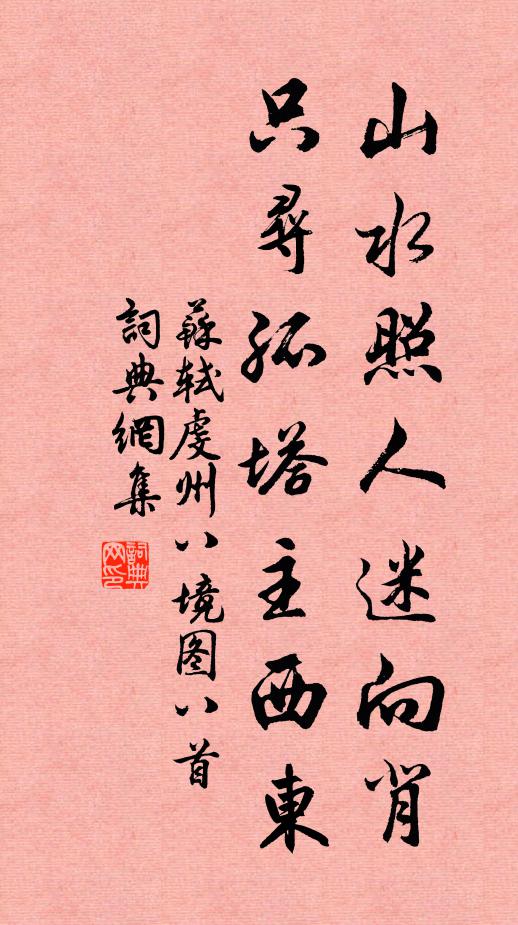 山水照人迷向背
只尋孤塔主西東
蘇軾虔州八境图八首
詞典網集
詞典网印